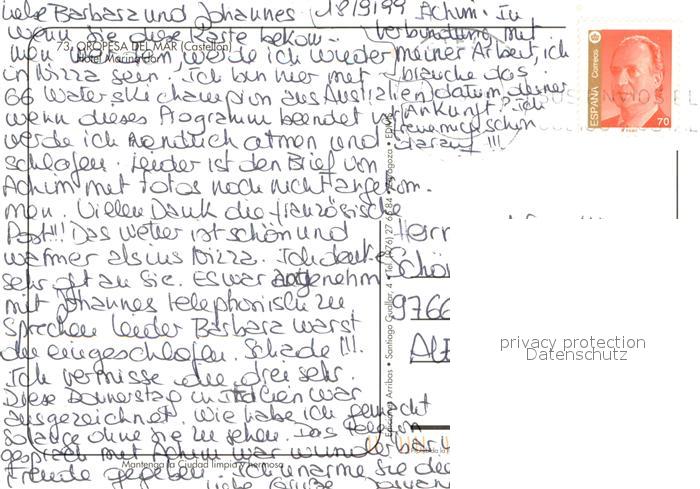 Liebe Barbara und Johannes 18/9/99
wenn Sie diese Karte bekom-
men werden werde ich wieder
in Nizza sein. Ich bin hier mit
66 Waterski champion aus Australien
wenn dieses Programm beendet
werde ich endlich atmen und
schlafen. Leider ist den Brief von
Achim mit Fotos noch nicht angekom-
men. Vielen Dank die französische
Post!!! Das wetter ist schön und
warmer als ins Nizza. Ich denke
sehr oft an Sie. Es war angenehm
mit Johannes telephonisch zu
sprechen leider Barbara warst
du eingeschlafen. Schade !!!
Ich vermisse die drei sehr.
Diese Donnerstag in Italien war
ausgezeichnet. Wie habe ich gemacht
so lange ohne Sie zu sehen. Das Telefon
gesprach mit Achim war wunderbar
Freude gegeben. Ich umarme Sie
liebe Grüße
Achim. In
Verbindung mit
meiner Arbeit, ich
brauche das
datum deiner
Ankunft. Ich
freue mich schon
darauf !!!
73. OROPESA DEL MAR (Castellón)
Hotel Marina d'Or
Mantenga la Ciudad limpia y hermosa
Ediciones Arribas • Santiago Guallar, 4 • Tel. (976) 27 66 84 • Zaragoza •
ESPAÑA Correos
70
Herr
Schö
9766
privacy protection
Datenschutz